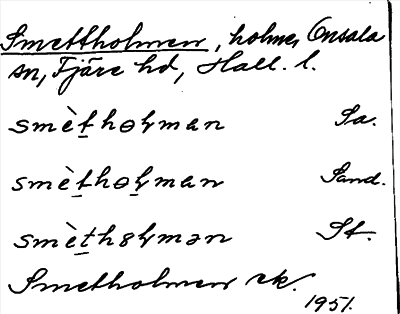 Smettholmen, holme, Onsala
sn, Fjäre hd, Hall. l.
smètholman Sa.
smèthɵlman Sand.
smèthɵlmən St.
Smetholmen ek.
1951.